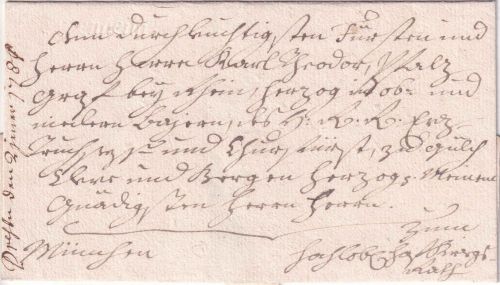 Dem Durchleuchtigsten Fürsten und
Herrn Herrn Karl Theodor, Pfalz
Graf bey Rhein, Herzog in Ob: und
niedern Bajern, des H. R. R. Erz
Truchseß und Churfürst, zu Gülch
Cleve und Bergen Herzog, Meinem
Gnädigsten Herrn Herrn.
München
Zum
hochlobl:
Rath
den Jener 178